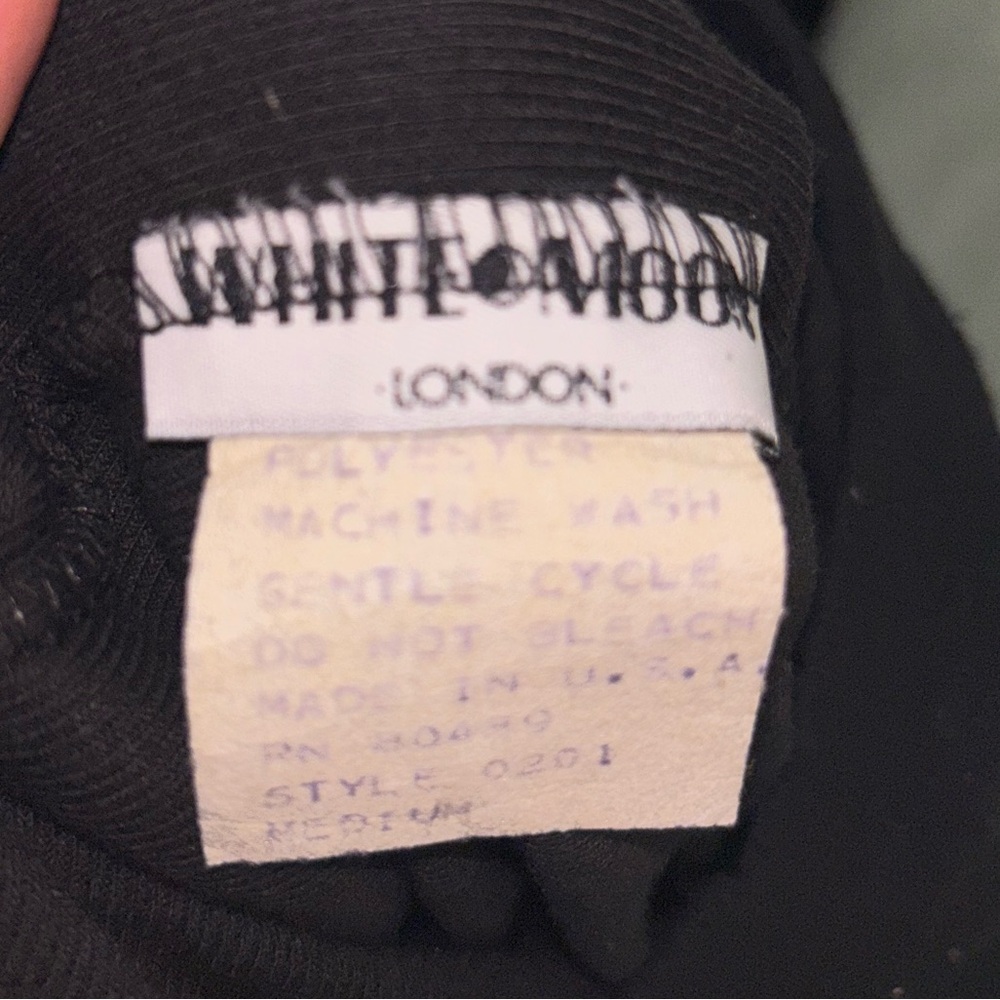 WHITE MOON
·LONDON·
POLYESTER
MACHINE WASH
GENTLE CYCLE
DO NOT BLEACH
MADE IN U.S.A.
RN
STYLE 0201
MEDIUM